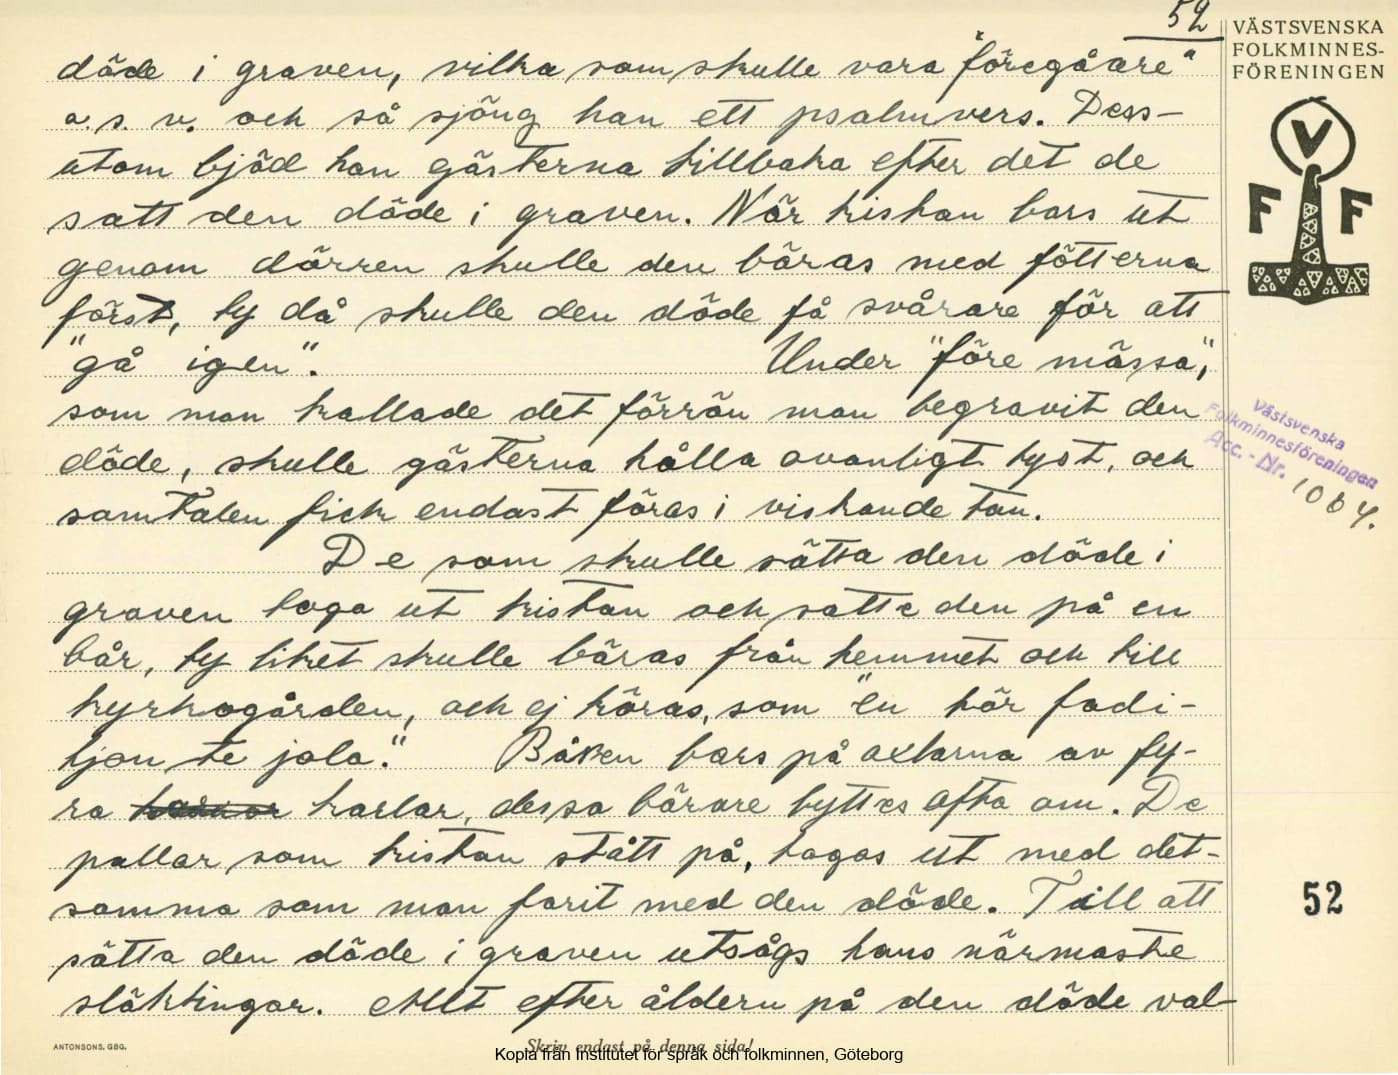 52
VÄSTSVENSKA
FOLKMINNES-
FÖRENINGEN
V
F F
döde i graven, vilka som skulle vara "föregåare"
o. s. v. och så sjöng han ett psalmvers. Dess-
utom bjöd han gästerna tillbaka efter det de
satt den döde i graven. När kistan bars ut
genom dörren skulle den bäras med fötterna
först, ty då skulle den döde få svårare för att
"gå igen". Under "före mässa",
som man kallade det förrän man begravit den
döde, skulle gästerna hålla ovanligt tyst, och
samtalen fick endast föras i viskande ton.
De som skulle sätta den döde i
graven toga ut kistan och satte den på en
bår, ty liket skulle bäras från hemmet och till
kyrkogården, och ej köras, som "en kör fodi-
tjon te jola." Båren bars på axlarna av fy-
ra karlar, dessa bärare byttes ofta om. De
pallar som kistan stått på, togos ut med det-
samma som man farit med den döde. Till att
sätta den döde i graven utsågs hans närmaste
släktingar. Allt efter åldern på den döde val-
Västsvenska
Folkminnesföreningen
Acc. - Nr. 1064.
52
ANTONSONS, GBG.
Skriv endast på denna sida!
Kopia från Institutet för språk och folkminnen, Göteborg